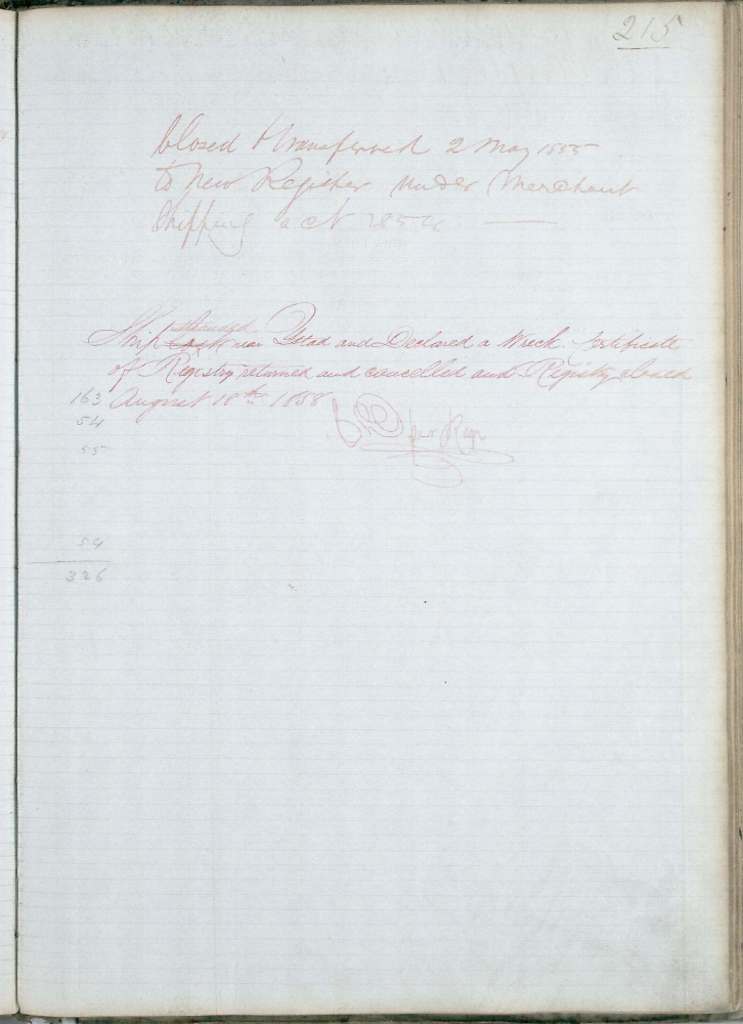 215
Closed & transferred 2 May 1855
to New Register under Merchant
Shipping act 1854
stranded
Ship near Ystad and Declared a Wreck. Certificate
of Registry returned and cancelled and Registry closed
163 August 18th 1858
54
55
54
326